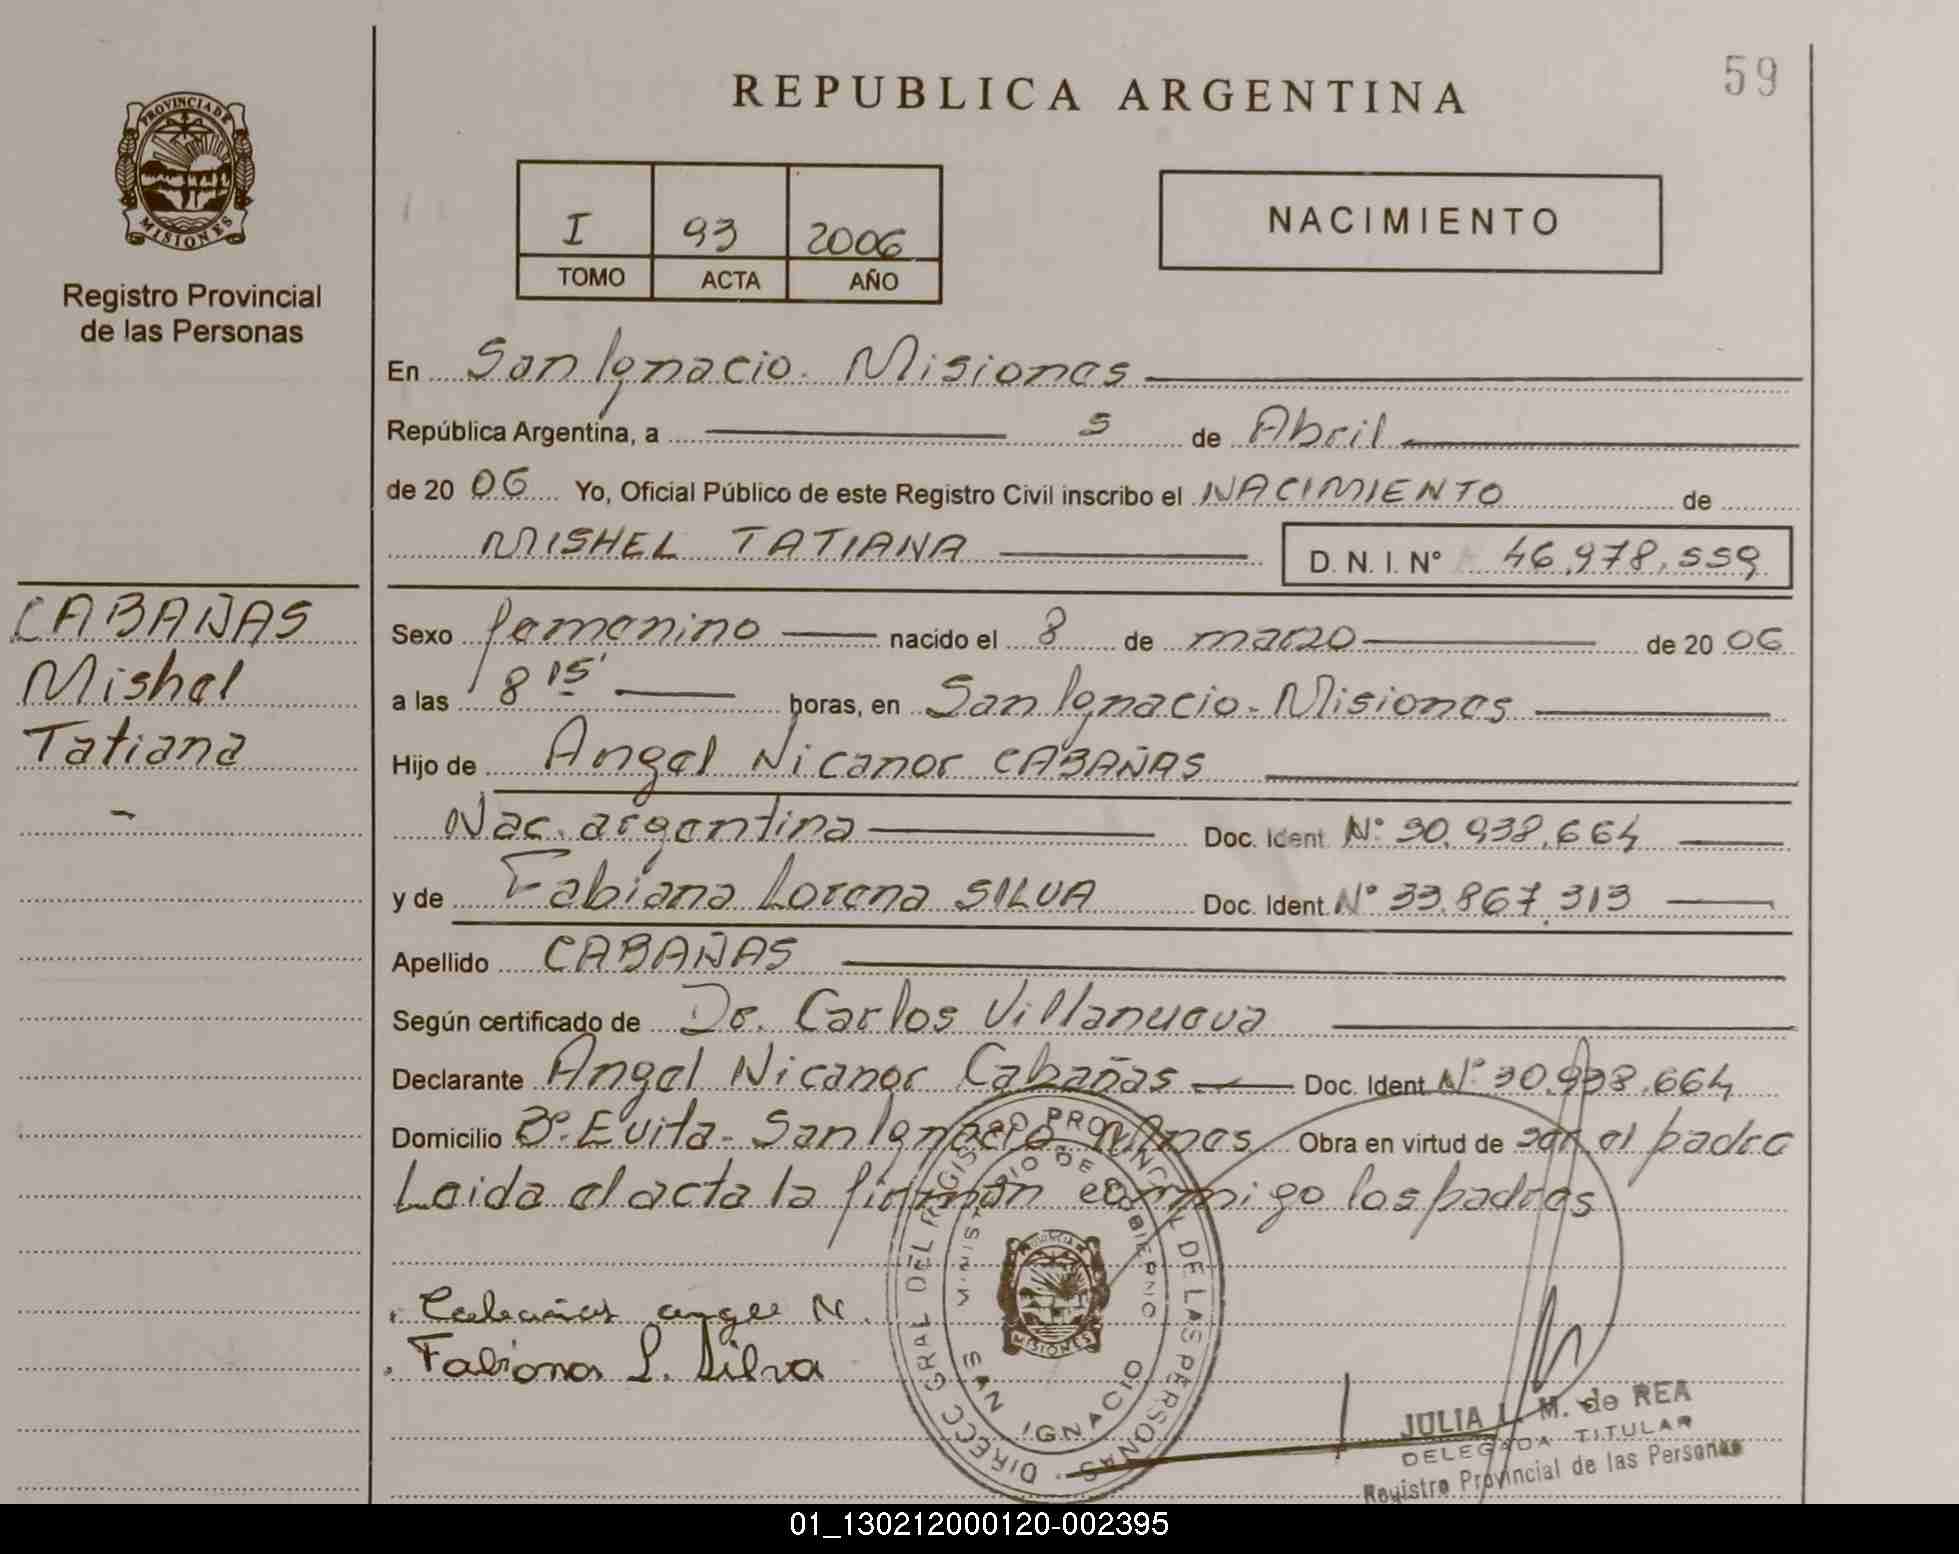 59
REPUBLICA ARGENTINA
PROVINCIA DE
MISIONES
Registro Provincial
de las Personas
I 93 2006
TOMO ACTA AÑO
NACIMIENTO
En San Ignacio. Misiones
República Argentina, a 5 de Abril
de 20 06 Yo, Oficial Público de este Registro Civil inscribo el NACIMIENTO de
MISHEL TATIANA D. N. I. N° 46.978.559
CABAÑAS
Mishel
Tatiana
-
Sexo femenino nacido el 8 de marzo de 20 06
a las 8 15' horas, en San Ignacio - Misiones
Hijo de Angel Nicanor CABAÑAS
Nac. argentina Doc. Ident. N° 30.938.664
y de Fabiana Lorena SILVA Doc. Ident. N° 33.867.313
Apellido CABAÑAS
Según certificado de Dr. Carlos Villanueva
Declarante Angel Nicanor Cabañas Doc. Ident. N° 30.938.664
Domicilio B° Evita - San Ignacio Mnes Obra en virtud de ser el padre
Leida el acta la firman conmigo los padres
Cabañas angel N.
Fabiana L. Silva
DIRECC GRAL DEL REGISTRO PROVINCIAL DE LAS PERSONAS
MINISTERIO DE GOBIERNO
SAN IGNACIO
MISIONES
JULIA L. M. de REA
DELEGADA TITULAR
Registro Provincial de las Personas
01_130212000120-002395